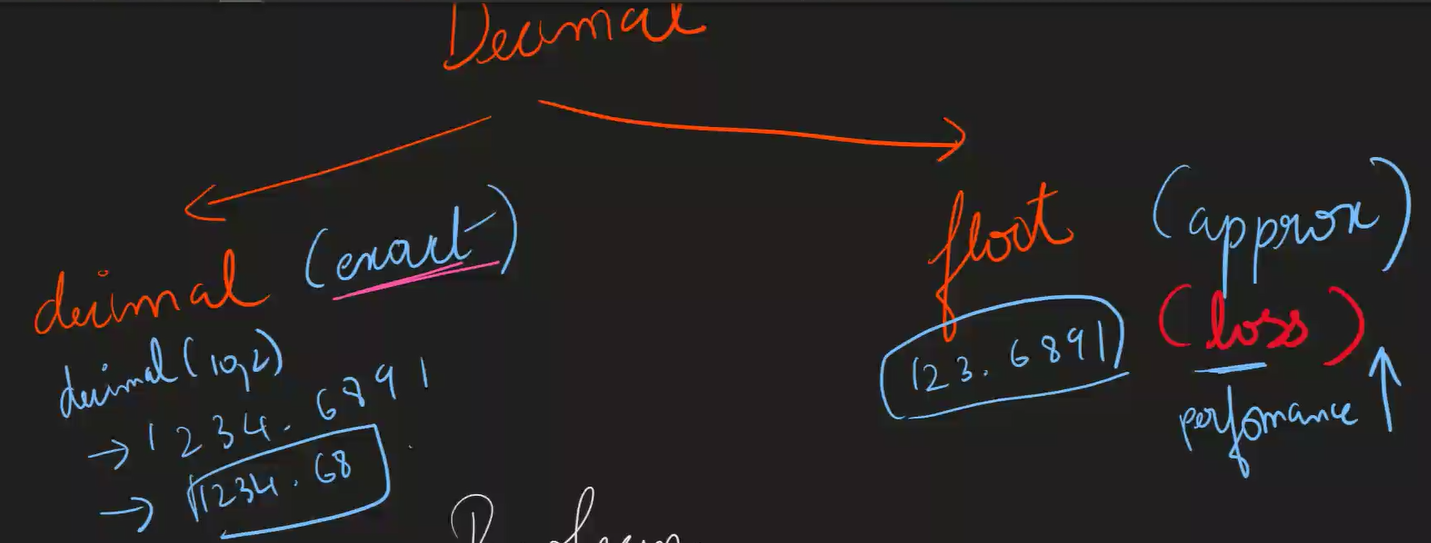 Decimal
decimal (exact)
decimal (10,2)
→ 1234.6891
→ 1234.68
float (approx)
123.6891 (loss)
perfomance ↑